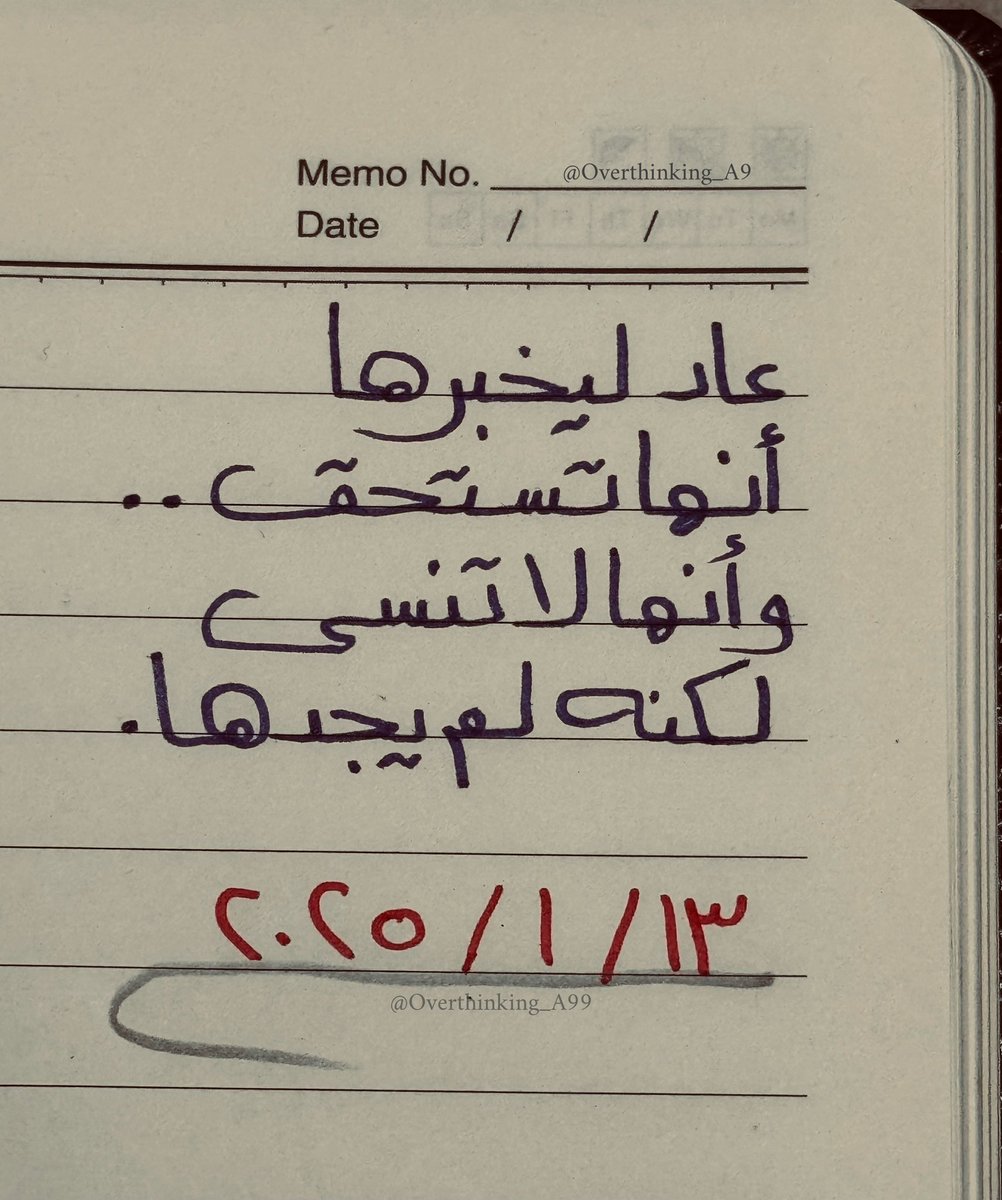 Memo No. @Overthinking_A9
Date / /
عاد ليخبرها
أنها تستحق ..
وأنها لا تنسى
لكنه لم يجدها.
١٣ / ١ / ٢٠٢٥
@Overthinking_A99